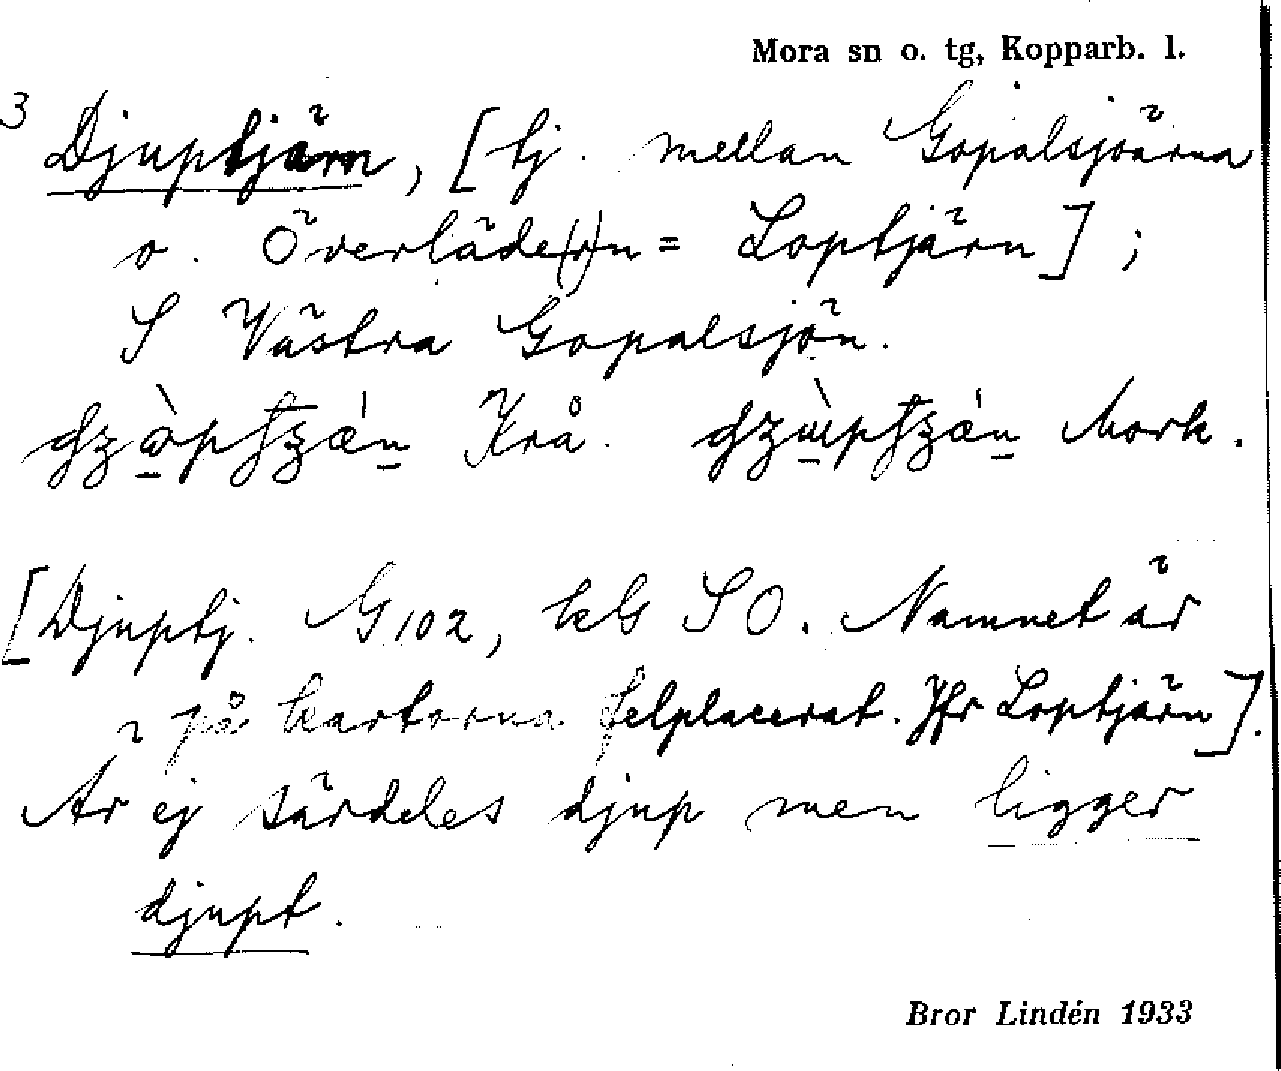 Mora sn o. tg, Kopparb. l.
3 Djuptjärn, [tj. mellan Gopalsjöarna
o. Överläde(r)n = Loptjärn];
S Västra Gopalsjön.
Krå. Mork.
[Djuptj. G102, kG SO. Namnet är
på kartorna felplacerat. Jfr Loptjärn].
Är ej särdeles djup men ligger
djupt.
Bror Lindén 1933